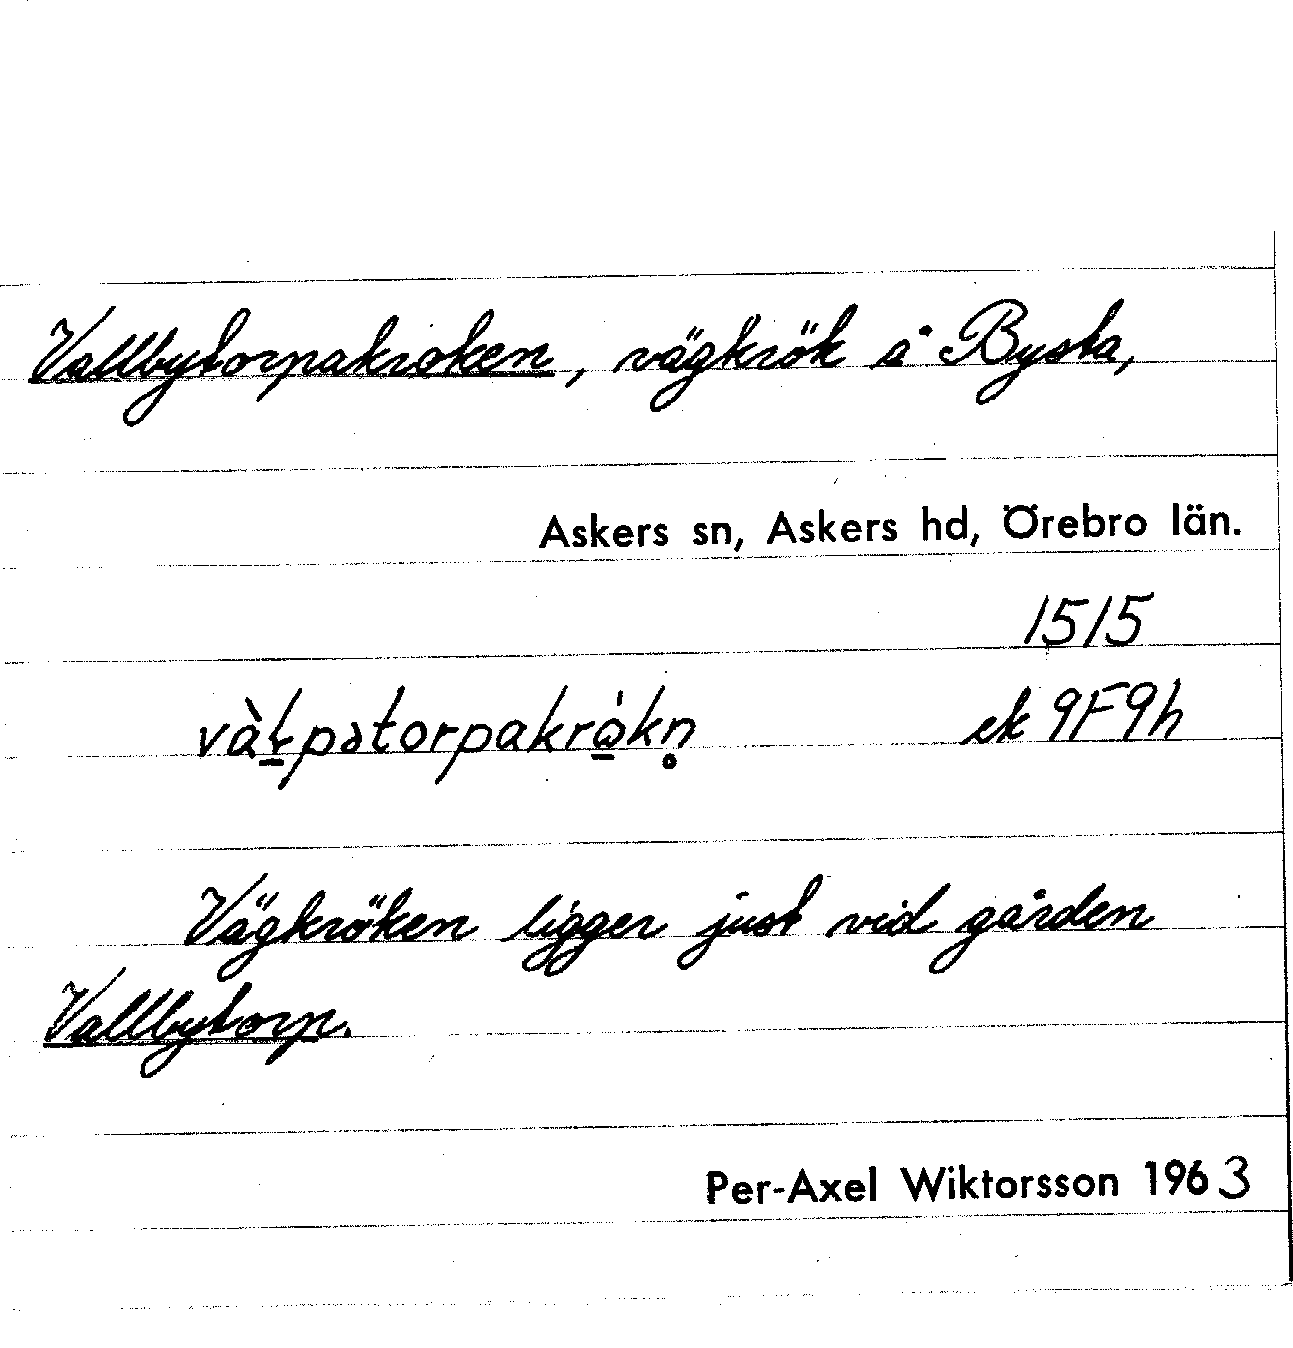 Vallbytorpakroken, vägkrök å Bysta,
Askers sn, Askers hd, Örebro län.
1515
ek 9F9h
Vägkröken ligger just vid gården
Vallbytorp.
Per-Axel Wiktorsson 1963